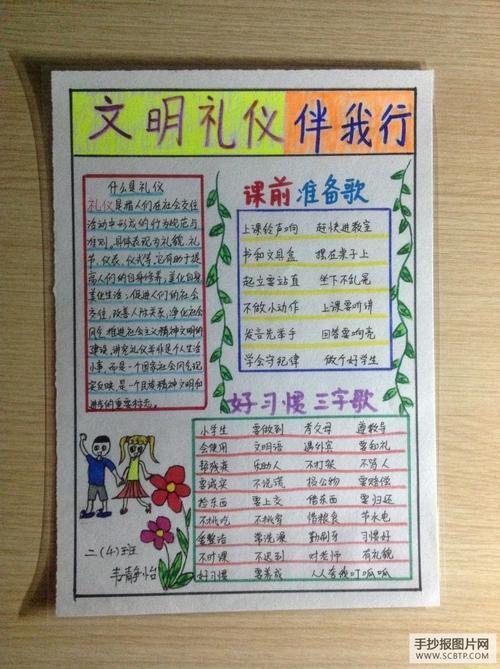 文明礼仪伴我行
什么是礼仪
礼仪是指人们在社会交往
活动中形成的行为规范与
准则。具体表现为礼貌、礼
节、仪表、仪式等。它有助于提
高人们的自身修养，美化自身
美化生活；促进人们的社会
交往，改善人际关系，净化社会
风气，推进社会主义精神文明的
建设，讲究礼仪并非是个人生活
小事，而是一个国家社会风气现
实反映，是一个民族精神文明和
进步的重要标志。
课前准备歌
上课铃声响 赶快进教室
书和文具盒 摆在桌子上
起立要站直 坐下不乱晃
不做小动作 上课要听讲
发言先举手 回答要响亮
学会守纪律 做个好学生
好习惯三字歌
小学生 要做到 孝父母 尊教导
会使用 文明语 遇外宾 要和礼
帮残疾 乐助人 不打架 不骂人
要诚实 不说谎 损公物 要赔偿
捡东西 要上交 借东西 要归还
不挑吃 不挑穿 惜粮食 节水电
爱整洁 常洗澡 勤刷牙 习惯好
不旷课 不迟到 对老师 有礼貌
好习惯 要养成 人人夸我叮呱呱
二(4)班
手抄报图片网
WWW.SCBTP.COM